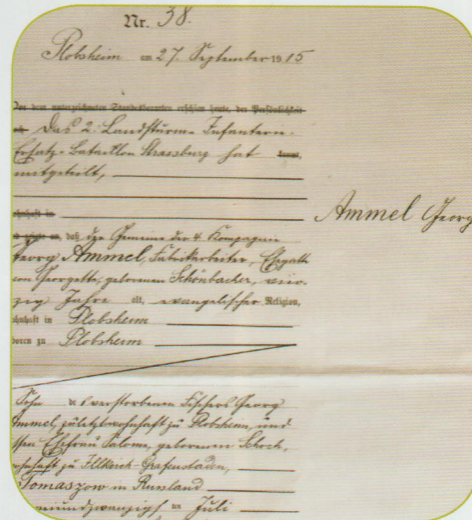 Nr. 38.
Plobsheim am 27. September 1915
Vor dem unterzeichneten Standesbeamten erschien heute, der Persönlichkeit
Das 2. Landsturm-Infanterie-
Ersatz-Bataillon Strassburg hat
mitgeteilt,
wohnhaft in
daß der Gemeine der 4. Kompagnie
Georg Ammel, Fabrikarbeiter, Ehegatte
von Georgette, geborenen Schönbacher, vier-
zig Jahre alt, evangelischer Religion,
wohnhaft in Plobsheim
geboren zu Plobsheim
Ammel Georg
Sohn des verstorbenen Fischers Georg
Ammel, zuletzt wohnhaft zu Plobsheim, und
Ehefrau Salome, geborenen Schock,
wohnhaft zu Illkirch-Grafenstaden,
Tomaszow in Russland
undzwanzigsten Juli